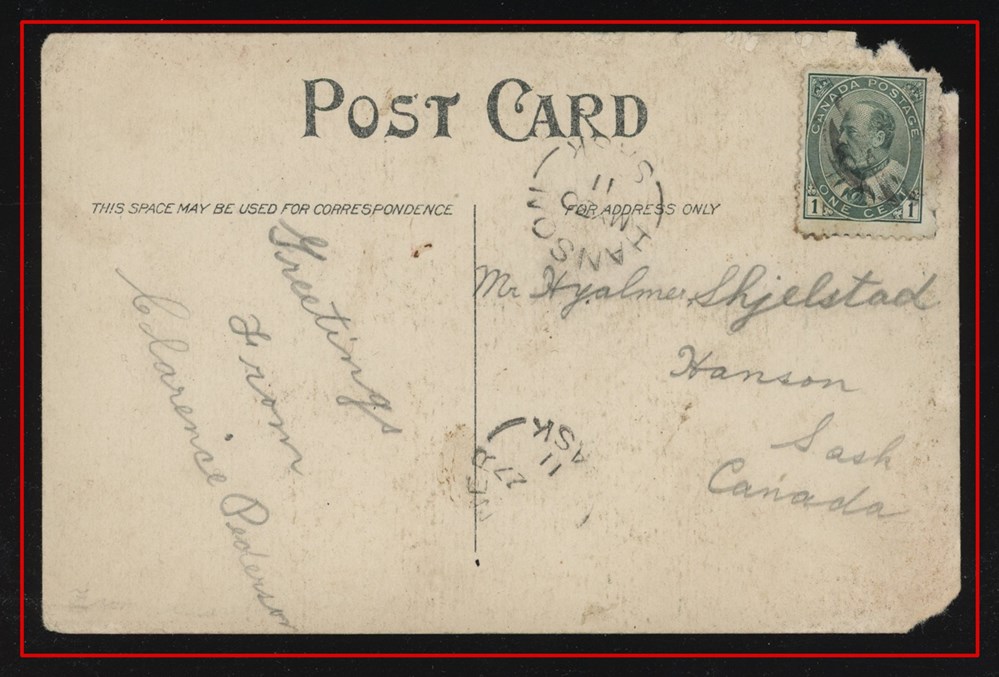 POST CARD
THIS SPACE MAY BE USED FOR CORRESPONDENCE
FOR ADDRESS ONLY
CANADA POSTAGE
1 ONE CENT 1
HANSON
MY
11
SASK
Greetings
From
Clarence Pederson
Mr Hyalmer Shjelstad
Hanson
Sask
Canada
27
11
ASK